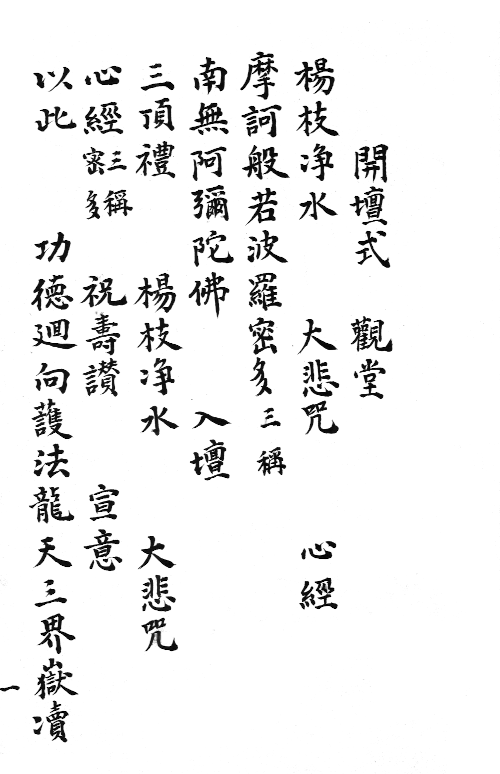 開壇式　觀堂
楊枝净水　大悲咒　心經
摩訶般若波羅密多三稱
南無阿彌陀佛　入壇
三頂禮　楊枝净水　大悲咒
心經密多三稱　祝壽讃　宣意
以此　功德迴向護法龍天三界嶽瀆
一